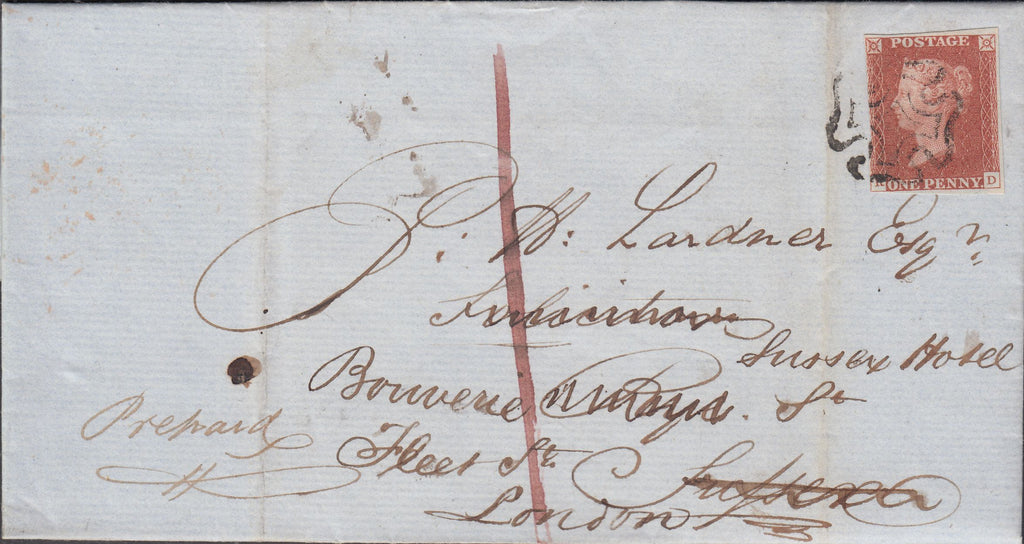 POSTAGE
ONE PENNY
D
P. W. Lardner Esqr.
Sussex Hotel
Bouverie St
Prepaid
Fleet St.
Sussex
London